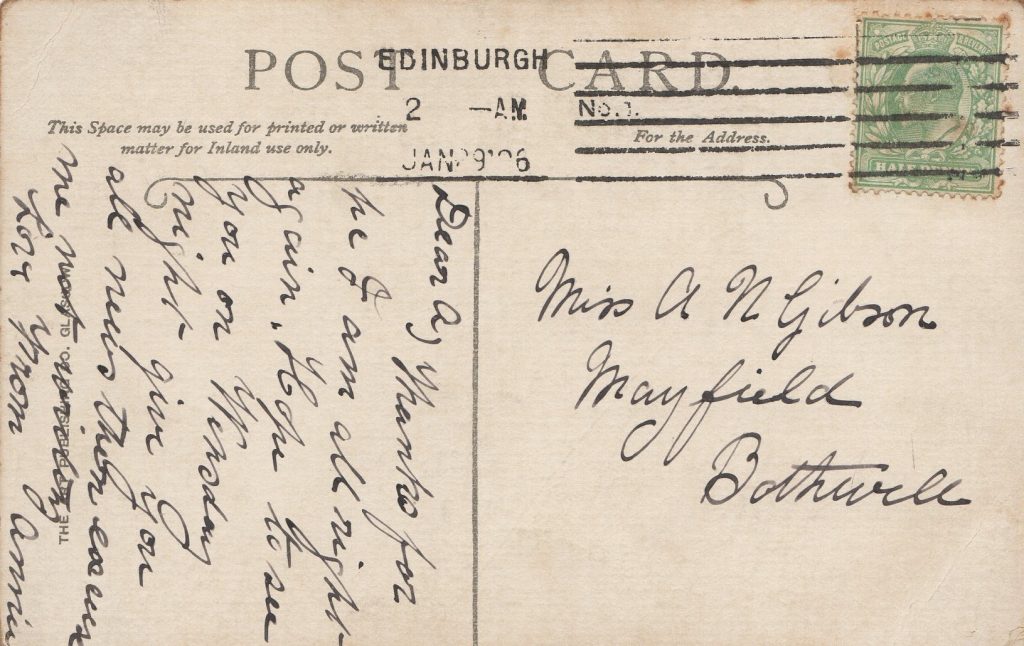 POST CARD.
EDINBURGH
2 —AM No.1.
JAN 29 '06
This Space may be used for printed or written
matter for Inland use only.
For the Address.
POSTAGE REVENUE
HALFPENNY
Dear A, Thanks for
pc I am all right
again. Hope to see
you on Wensday
night give you
all news then excuse
me not writing
Love from Annie
Miss A N Gibson
Mayfield
Bothwell
CO. GLASGOW